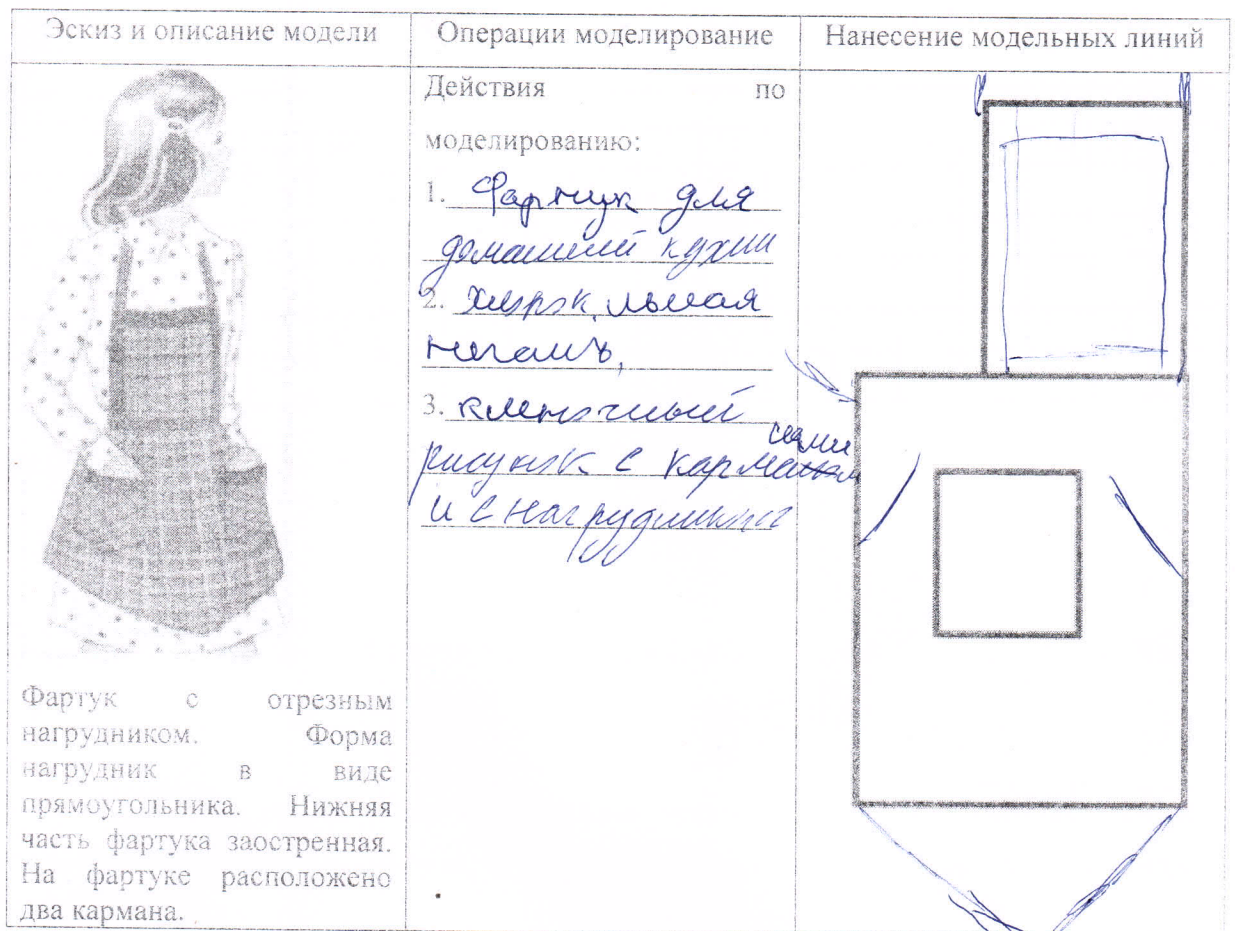 Эскиз и описание модели
Операции моделирование
Нанесение модельных линий
Фартук с отрезным
нагрудником. Форма
нагрудник в виде
прямоугольника. Нижняя
часть фартука заостренная.
На фартуке расположено
два кармана.
Действия по
моделированию:
1. Фартук для
домашней кухни
2.
3. клетчатый
рисунок с карманами
и с